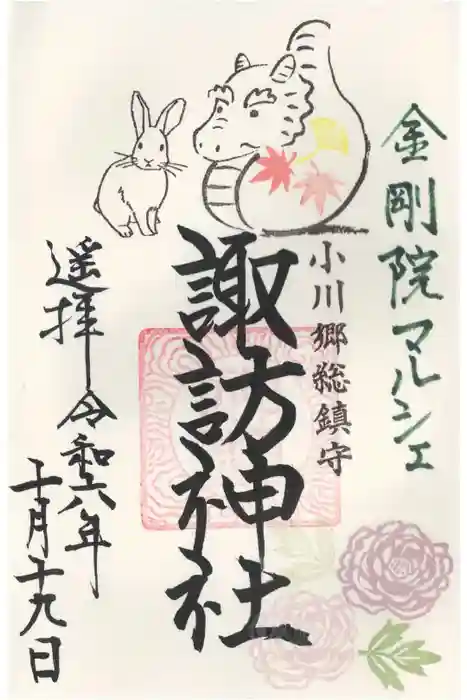 金剛院マルシェ
小川郷総鎮守
諏訪神社
遥拝 令和六年
十月十九日